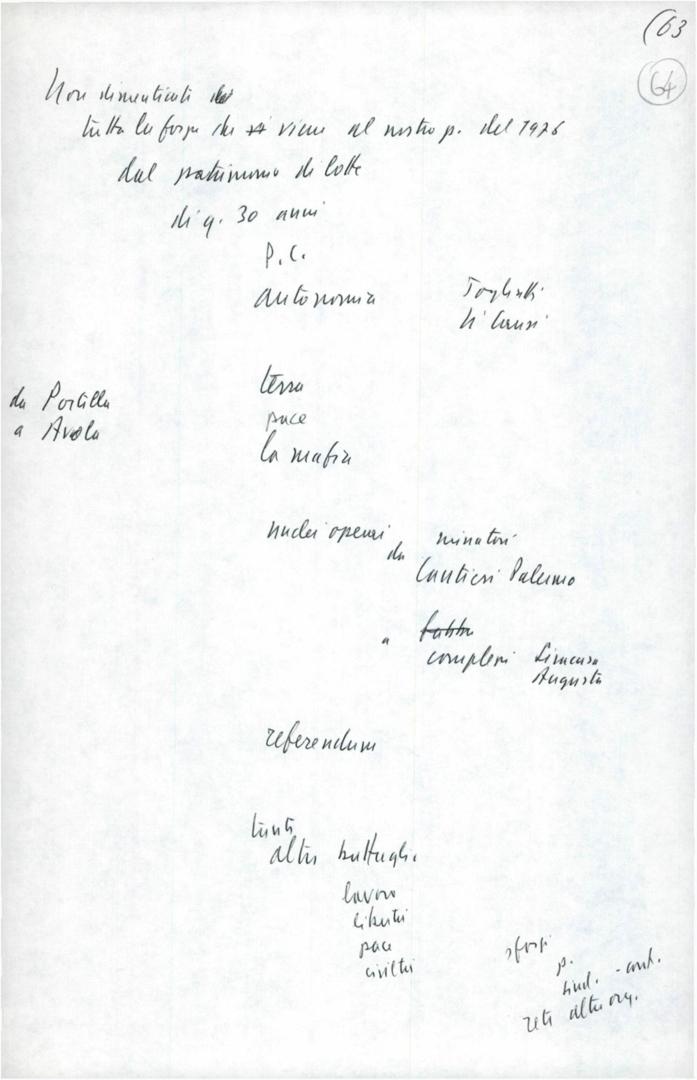 (63
64
Non dimenticate
tutta la forza che viene al nostro p. del 1976
dal patrimonio di lotte
di q. 30 anni
P.C.
autonomia
Togliatti
Li Causi
da Portella
a Avola
terra
pace
la mafia
nuclei operai
da minatori
Cantieri Palermo
a
complessi Siracusa
Augusta
referendum
tante
altre battaglie
lavoro
libertà
pace
civiltà
sforzi
p.
sind. - cont.
rete altre org.